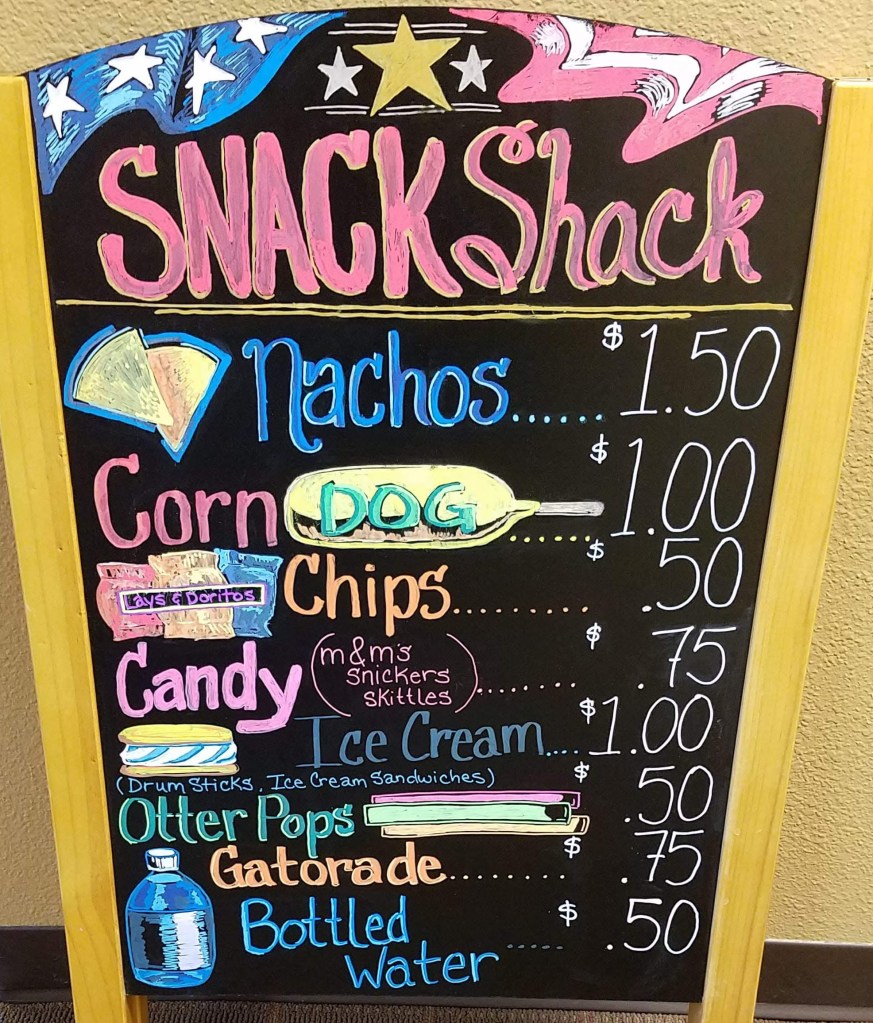 SNACK Shack
Nachos...... $1.50
Corn DOG ...... $1.00
Lays & Doritos Chips.......... $.50
Candy (m&m's
Snickers
Skittles)......... $.75
Ice Cream.... $1.00
(Drum Sticks, Ice Cream Sandwiches)
Otter Pops $.50
Gatorade......... $.75
Bottled ..... $.50
Water